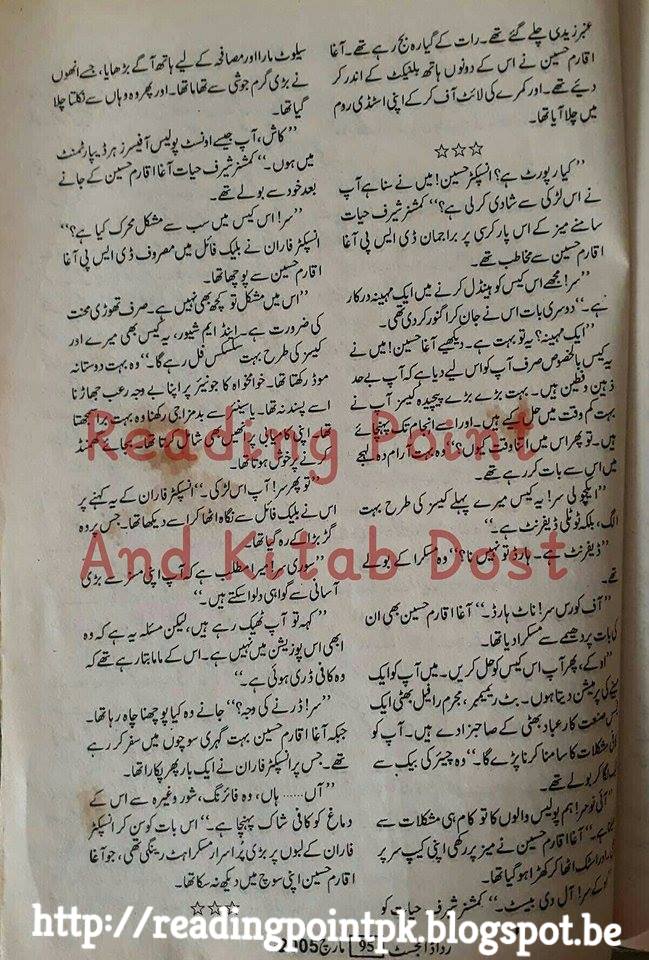 عنبر زیدی چلے گئے تھے۔ رات کے گیارہ بج رہے تھے۔ آغا
اقارم حسین نے اس کے دونوں ہاتھ بلینکٹ کے اندر کر
دیئے تھے۔ اور کمرے کی لائٹ آف کر کے اپنی اسٹڈی روم
میں چلا آیا تھا۔
☆☆☆
’’کیا رپورٹ ہے؟ انسپکٹر حسین! میں نے سنا ہے آپ
نے اس لڑکی سے شادی کر لی ہے؟‘‘ کمشنر شرف حیات
سامنے میز کے اس پار کرسی پر براجمان ڈی ایس پی آغا
اقارم حسین سے مخاطب تھے۔
’’سر! مجھے اس کیس کو ہینڈل کرنے میں ایک مہینہ درکار
ہے۔‘‘ دوسری بات اس نے جان کر اگنور کر دی تھی۔
’’ایک مہینہ؟ یہ تو بہت ہے۔ دیکھیے آغا حسین! میں نے
یہ کیس بالخصوص صرف آپ کو اس لیے دیا ہے کہ آپ بے حد
ذہین و فطین ہیں۔ بہت بڑے بڑے پیچیدہ کیسز آپ نے
بہت کم وقت میں حل کیے ہیں۔ اور اسے انجام تک پہنچائے
ہیں۔ تو پھر اس میں اتنا وقت کیوں؟‘‘ وہ بہت آرام دہ لہجے
میں اس سے بات کر رہے تھے۔
’’ایکچولی سر! یہ کیس میرے پہلے کیسز کی طرح بہت
الگ، بلکہ ٹوٹلی ڈیفرنٹ ہے۔‘‘
’’ڈیفرنٹ ہے۔ ہارڈ تو نہیں نا؟‘‘ وہ مسکرا کے بولے
تھے۔
’’آف کورس سر! ناٹ ہارڈ۔‘‘ آغا اقارم حسین بھی ان
کی بات پر دھیمے سے مسکرا دیا تھا۔
’’اوکے، پھر آپ اس کیس کو حل کریں۔ میں آپ کو ایک
مہینے کی پرمیشن دیتا ہوں۔ بٹ ریممبر، مجرم رافیل بھٹی ایک
بزنس صنعت کار عباد بھٹی کے صاحبزادے ہیں۔ آپ کو
کافی مشکلات کا سامنا کرنا پڑے گا۔‘‘ وہ چیئر کی بیک سے
ٹیک لگا کر بولے تھے۔
’’آئی نو سر! ہم پولیس والوں کا تو کام ہی مشکلات سے
ہے۔‘‘ آغا اقارم حسین نے میز پر رکھی اپنی کیپ سر پر
اور اسٹک اٹھا کر کھڑا ہو گیا تھا۔
’’اوکے سر! آل دی بیسٹ۔‘‘ کمشنر شرف حیات کو
سیلوٹ مارا اور مصافحہ کے لیے ہاتھ آگے بڑھایا، جسے انھوں
نے بڑی گرم جوشی سے تھاما تھا۔ اور پھر وہ وہاں سے نکلتا چلا
گیا تھا۔
’’کاش، آپ جیسے اونسٹ پولیس آفیسرز ہر ڈیپارٹمنٹ
میں ہوں۔‘‘ کمشنر شرف حیات آغا اقارم حسین کے جانے
بعد خود سے بولے تھے۔
’’سر! اس کیس میں سب سے مشکل محرک کیا ہے؟‘‘
انسپکٹر فاران نے بلیک فائل میں مصروف ڈی ایس پی آغا
اقارم حسین سے پوچھا تھا۔
’’اس میں مشکل تو کچھ بھی نہیں ہے۔ صرف تھوڑی محنت
کی ضرورت ہے۔ اینڈ ایم شیور، یہ کیس بھی میرے اور
کیسز کی طرح بہت سکسس فل رہے گا۔‘‘ وہ بہت دوستانہ
موڈ رکھتا تھا۔ خوامخواہ کا جونیئر پر اپنا بے وجہ رعب جھاڑنا
اسے پسند نہ تھا۔ یا سینئر سے بدمزاجی رکھنا وہ بہت برا سمجھتا
تھا۔ اپنی کامیابی پر انھیں بھی شامل کرتا تھا۔ بجائے گھمنڈ
کرنے پر خوش ہوتا تھا۔
’’تو پھر سر! آپ اس لڑکی۔‘‘ انسپکٹر فاران کے یہ کہنے پر
اس نے بلیک فائل سے نگاہ اٹھا کر اسے دیکھا تھا۔ جس پر وہ
گڑبڑا کے رہ گیا تھا۔
’’سوری سر! میرا مطلب ہے کہ آپ اپنی مسز سے بڑی
آسانی سے گواہی دلوا سکتے ہیں۔‘‘
’’کہہ تو آپ ٹھیک رہے ہیں، لیکن مسئلہ یہ ہے کہ وہ
ابھی اس پوزیشن میں نہیں ہے۔ اس کے ماما بتا رہے تھے کہ
وہ کافی ڈری ہوئی ہے۔‘‘
’’سر! ڈرنے کی وجہ؟‘‘ جانے وہ کیا پوچھنا چاہ رہا تھا۔
جبکہ آغا اقارم حسین بہت گہری سوچوں میں سفر کر رہے
تھے۔ جس پر انسپکٹر فاران نے ایک بار پھر پکارا تھا۔
’’آں...... ہاں، وہ فائرنگ، شور وغیرہ سے اس کے
دماغ کو کافی شاک پہنچا ہے۔‘‘ اس بات کو سن کر انسپکٹر
فاران کے لبوں پر بڑی پراسرار مسکراہٹ رینگی تھی، جو آغا
اقارم حسین اپنی سوچ میں دیکھ نہ سکا تھا۔
☆☆☆
Reading Point
And Kitab Dost
ردا ڈائجسٹ 95 مارچ 2005
http://readingpointpk.blogspot.be